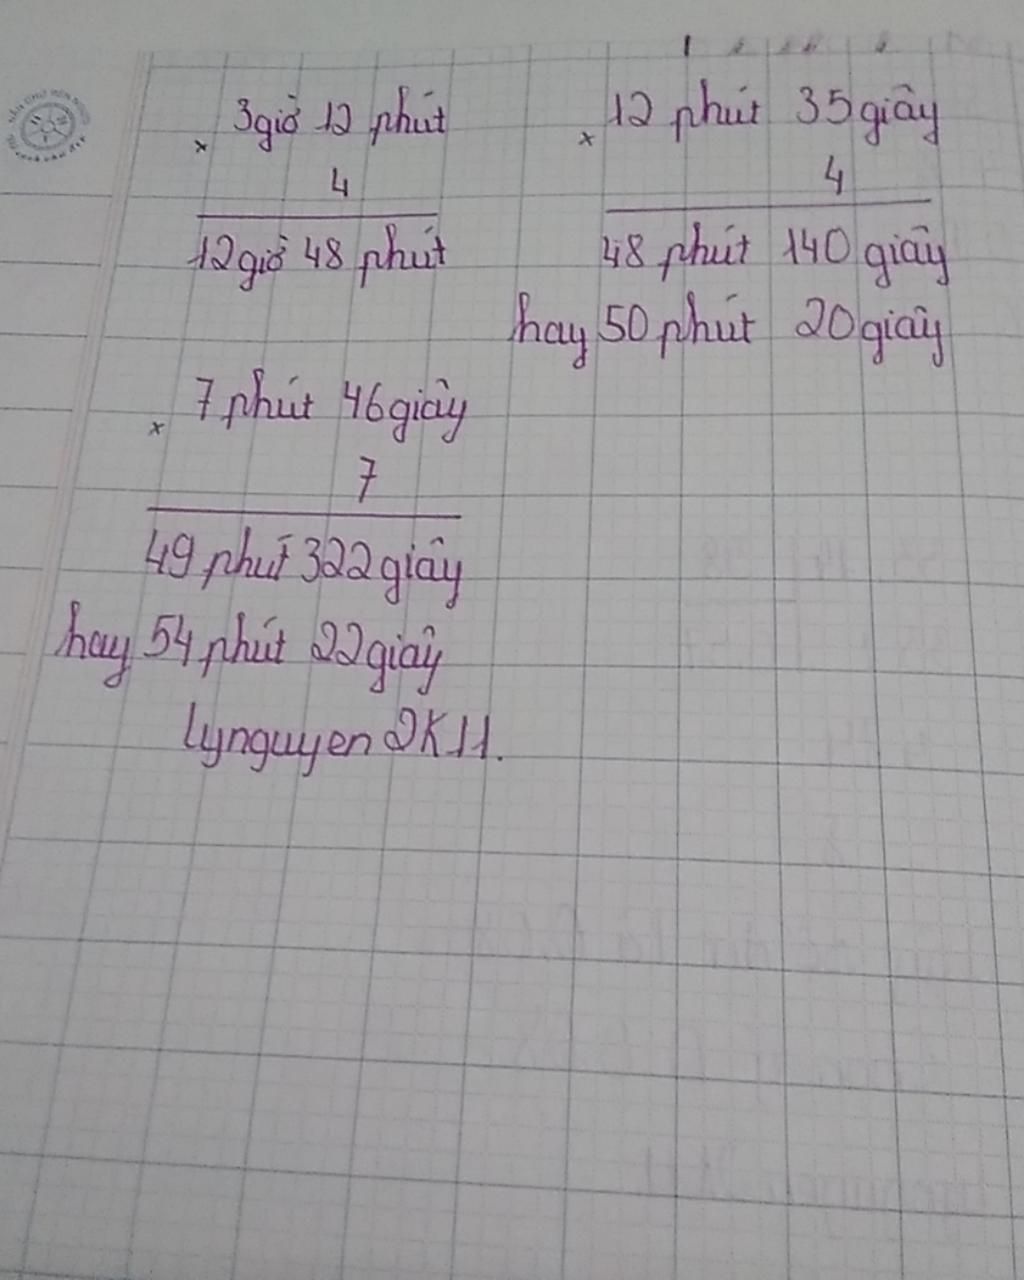 3giờ 12 phút
x
4
12giờ 48 phút
12 phút 35giây
x
4
48 phút 140 giây
hay 50 phút 20giây
7 phút 46giây
x
7
49 phút 322giây
hay 54 phút 22giây
lynguyen2K11.